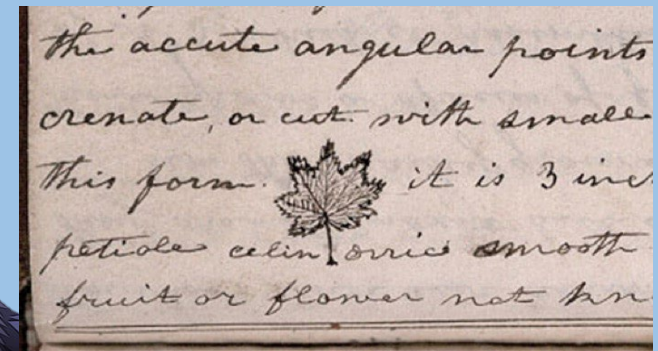 the accute angular points
crenate, or cut with small
this form. it is 3 inc
petiole celindrric smooth
fruit or flower not kn